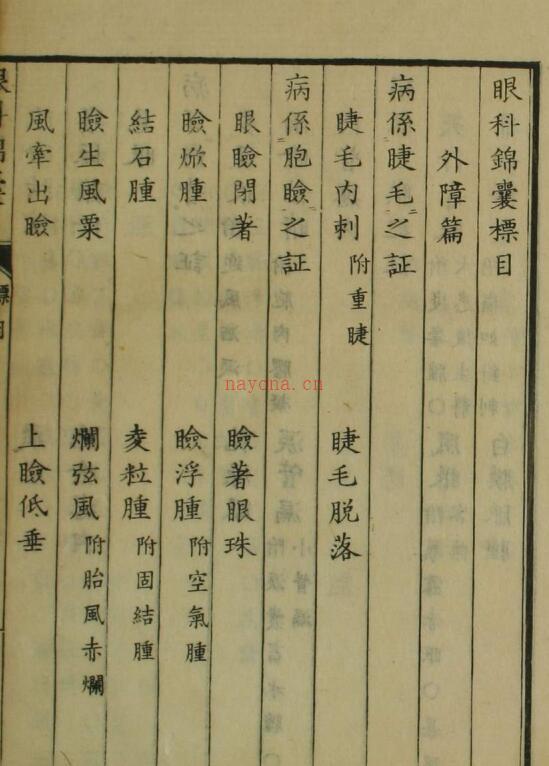 眼科錦囊標目
外障篇
病係睫毛之証
睫毛内刺 附重睫 睫毛脱落
病係胞瞼之証
眼瞼閉著 瞼著眼珠
瞼焮腫 瞼浮腫 附空氣腫
結石腫 麦粒腫 附固結腫
瞼生風粟 爛弦風 附胎風赤爛
風牽出瞼 上瞼低垂
nayona.cn